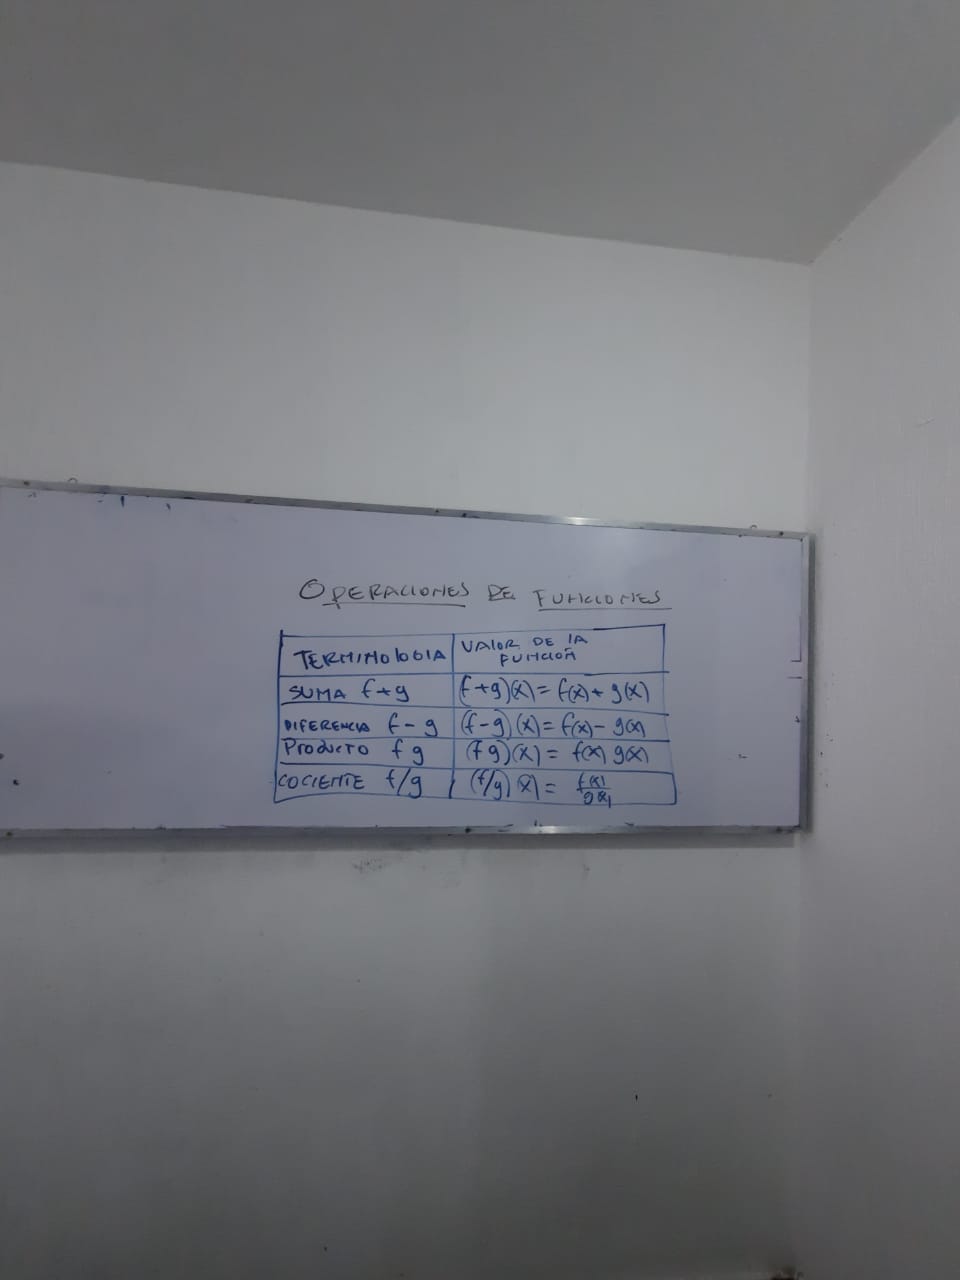 OPERACIONES DE FUNCIONES
TERMINOLOGIA VALOR DE LA FUNCIÓN
SUMA f+g (f+g)(x) = f(x) + g(x)
DIFERENCIA f-g (f-g)(x) = f(x) - g(x)
Producto fg (fg)(x) = f(x) g(x)
COCIENTE f/g (f/g)(x) = f(x)/g(x)